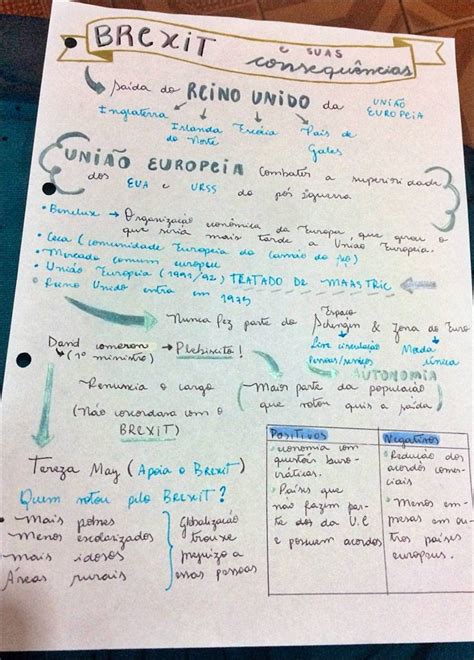 BREXIT e suas consequências
Saída do REINO UNIDO da UNIÃO EUROPEIA
Inglaterra Irlanda do Norte Escócia País de Gales
UNIÃO EUROPEIA Combater a superioridade
dos EUA e URSS do pós guerra
• Benelux → Organização econômica da Europa, que gerou o
que seria mais tarde a União Europeia.
• Ceca (comunidade Europeia do carvão do aço)
• Mercado comum europeu
• União Europeia (1991/92) TRATADO DE MAASTRIC
• Reino Unido entra em
1975
Nunca fez parte do Espaço Schengen & Zona do Euro
Livre circulação pessoas/serviços
Moeda única
David cameron → Plebiscito!
(1º ministro)
AUTONOMIA
Renuncia o cargo
(Não concordava com o
BREXIT)
Maior parte da população
que votou quis a saída
Tereza May (Apoia o Brexit)
Quem votou pelo BREXIT?
– Mais pobres
– Menos escolarizados
– Mais idosos
– Áreas rurais
Globalização
trouxe
prejuízo a
essas pessoas
Positivos
• economia com
questões buro-
cráticas.
• Países que
não fazem par-
te dos da U.E
e possuem acordos
Negativos
• Redução dos
acordos comer-
ciais
• Menos em-
presas em ou-
tros países
europeus.